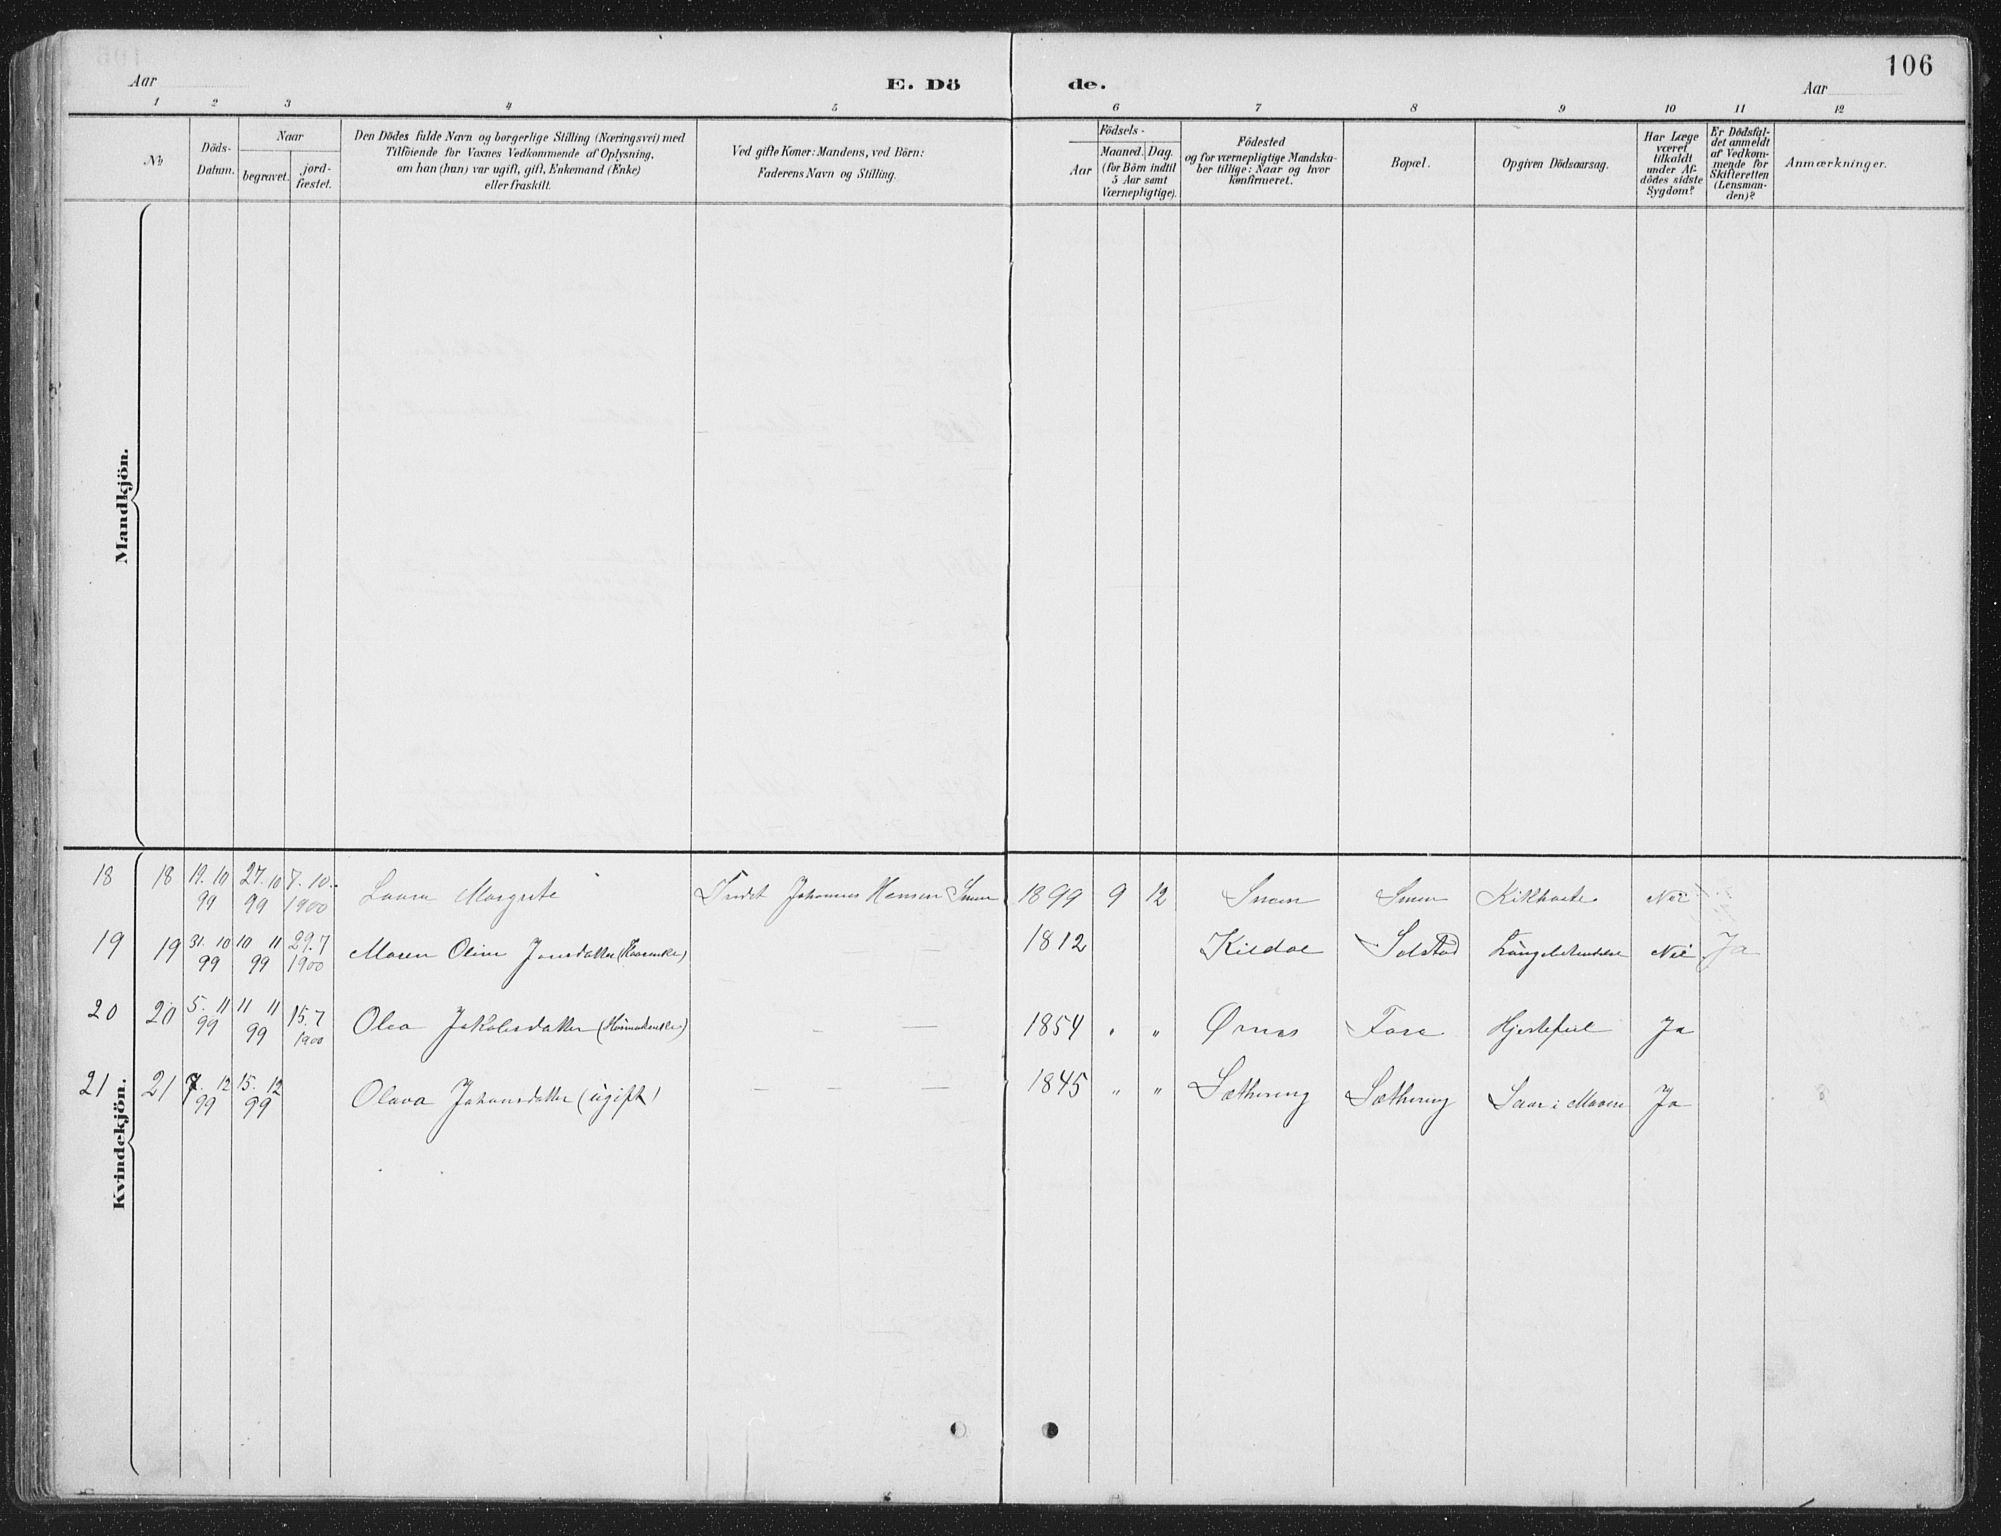 106
Aar
E. Dö
de.
Aar
1 2 3 4 5 6 7 8 9 10 11 12
No
Döds-
Datum.
Naar
begravet.
jord-
fæstet.
Den Dödes fulde Navn og borgerlige Stilling (Næringsvei) med
Tilföiende for Voxnes Vedkommende af Oplysning,
om han (hun) var ugift, gift, Enkemand (Enke)
eller fraskilt.
Ved gifte Koner: Mandens, ved Börn:
Faderens Navn og Stilling.
Aar
Födsels-
Maaned. Dag.
(for Börn indtil
5 Aar samt
Værnepligtige).
Födested
og for værnepligtige Mandska-
ber tillige: Naar og hvor
konfirmeret.
Bopæl.
Opgiven Dödsaarsag.
Har Læge
været
tilkaldt
under Af-
dödes sidste
Sygdom?
Er Dödsfal-
det anmeldt
af Vedkom-
mende for
Skifteretten
(Lensman-
den)?
Anmærkninger.
Mandkjön.
Kvindekjön.
18 18 19. 10 99 27. 10 99 7. 10. 1900 Laura Margrete Johannes Hansen 1899 9 12 Kikhoste Nei
19 19 31. 10 99 10 11 99 29. 7 1900 Maren Oline Jonsdatter — 1812 Kildal Solstad Lungebetændelse Nei Ja
20 20 5. 11 99 11 11 99 15. 7 1900 Olea Jakobsdatter - — 1854 " " Ørnes Fore Hjertefeil Ja
21 21 7. 12 99 15. 12 99 Olava Johansdatter (ugift) — — — 1845 " " Sæthereng Sæthereng Saar i Maven Ja